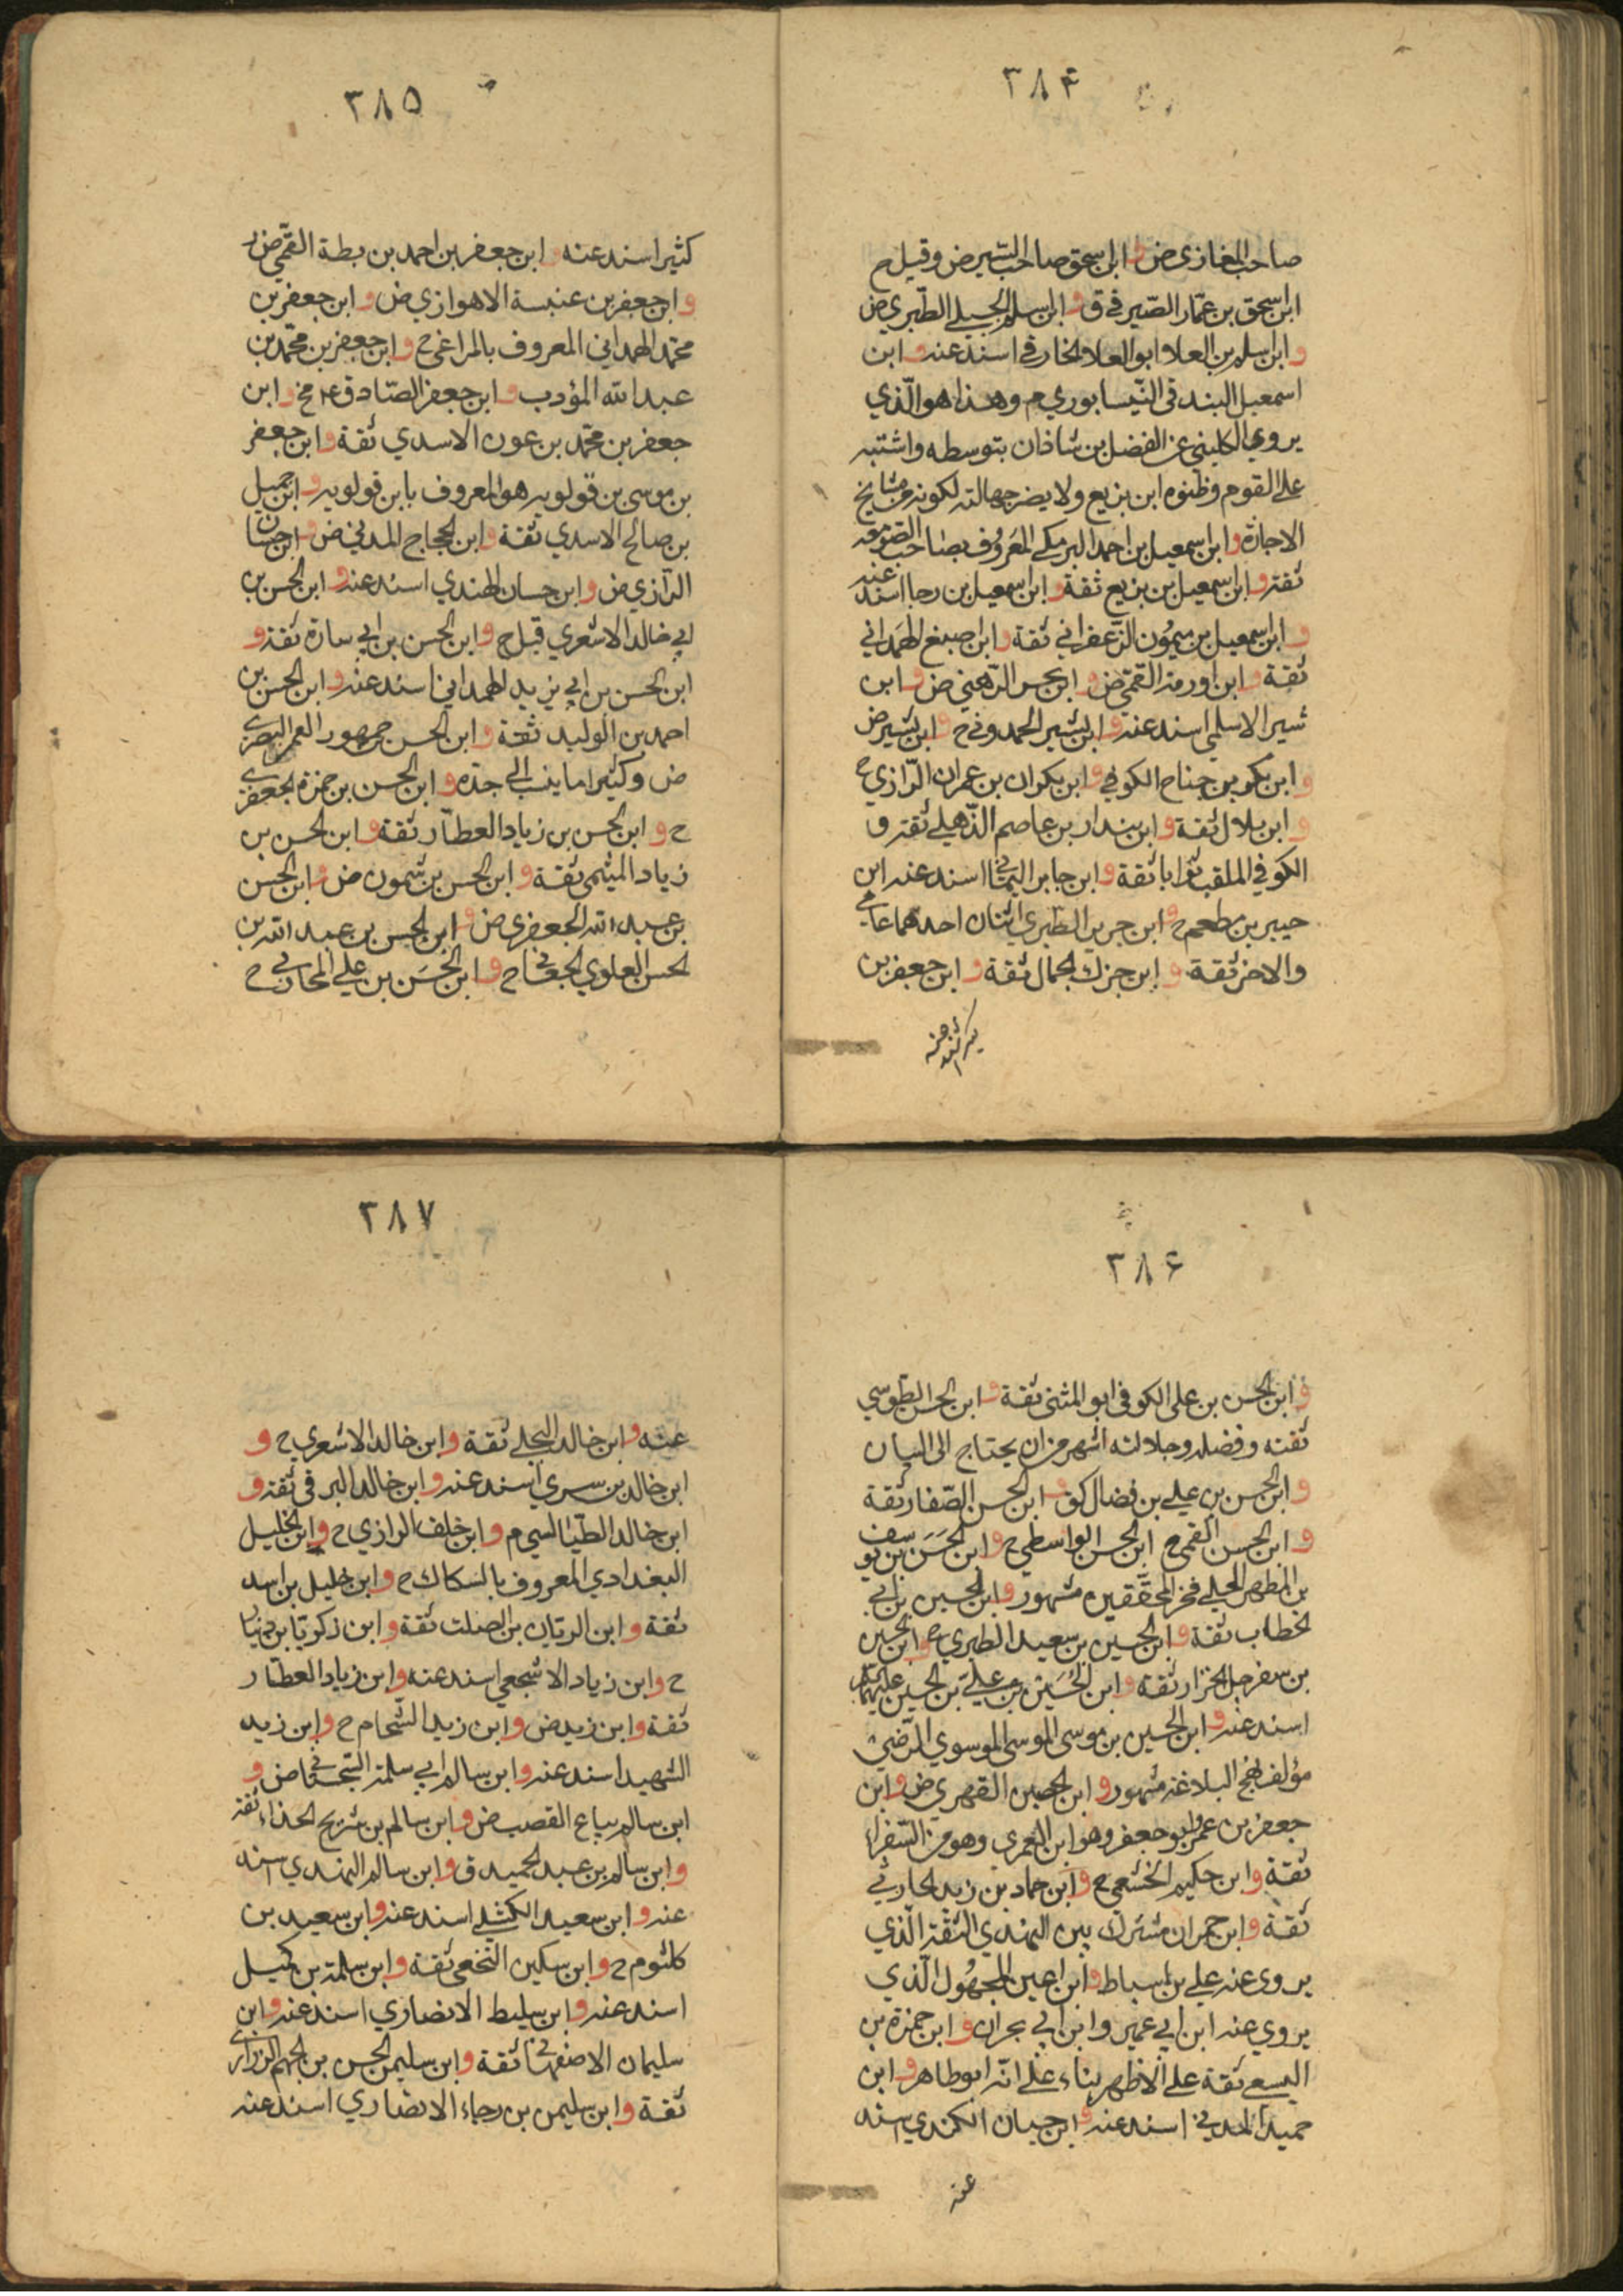 ٣٨۴
صاحب المغازي ض و ابن اسحق صاحب السير ض وقيل م
ابن اسحق بن عمّار الصّيرفي ق و ابن اسلم الجبلي الطبري ض
و ابن اسلم بن العلا و ابو العلا الخارفي اسند عنه و ابن
اسمعيل البندقي النّيسابوري م وهذا هو الّذي
يروي الكليني عن الفضل بن شاذان بتوسطه واشتبه
على القوم وظنوه ابن بزيع ولا يضر جهالته لكونه من مشايخ
الاجازة و ابن اسمعيل بن احمد البرمكي المعروف بصاحب الصومعه
ثقة و ابن اسمعيل بن بزيع ثقة و ابن اسمعيل بن رجا اسند عنه
و ابن اسمعيل بن ميمون الزّعفراني ثقة و ابن اصبغ الهمداني
ثقة و ابن اورمة القمي ض و ابن بحر الرّهني ض و ابن
بشير الاسلمي اسند عنه و ابن بشير الحمدوني ح و ابن بشير ض
و ابن بكر بن جناح الكوفي و ابن بكران بن عمران الرّازي ح
و ابن بلال ثقة و ابن بندار بن عاصم الذّهلي ثقة و
الكوفي الملقب ثوابا ثقة و ابن جابر اليماني اسند عنه ابن
جبير بن مطعم ح و ابن جرير الطبري اثنان احدهما عامي
والاخر ثقة و ابن جزك الجمال ثقة و ابن جعفر بن
٣٨۵
كثير اسند عنه و ابن جعفر بن احمد بن بطة القمّي ض
و ابن جعفر بن عنبسة الاهوازي ض و ابن جعفر بن
محمّد الهمداني المعروف بالمراغي ح و ابن جعفر بن محمّد بن
عبد الله المؤدب و ابن جعفر الصّادق ع مخ و ابن
جعفر بن محمّد بن عون الاسدي ثقة و ابن جعفر
بن موسى بن قولويه هو المعروف بابن قولويه و ابن جميل
بن صالح الاسدي ثقة و ابن الحجاج المدني ض و ابن حسان
الرّازي ض و ابن حسان الهندي اسند عنه و ابن الحسن بن
ابي خالد الاشعري قيل ح و ابن الحسن بن ابي سارة ثقة و
ابن الحسن بن ابي يزيد الهمداني اسند عنه و ابن الحسن بن
احمد بن الوليد ثقة و ابن الحسن جمهور العمي البصري
ض وكثيرا ما ينسب الى جدّه و ابن الحسن بن حمزة الجعفري
ح و ابن الحسن بن زياد العطّار ثقة و ابن الحسن بن
زياد الميثمي ثقة و ابن الحسن بن شمون ض و ابن الحسن
بن عبد الله الجعفري ض و ابن الحسن بن عبد الله بن
الحسن العلوي ح و ابن الحسن بن علي المحاربي ح
٣٨۶
و ابن الحسن بن علي الكوفي ابو المثنى ثقة و ابن الحسن الطوسي
ثقته وفضله وجلالته اشهر من ان يحتاج الى البيان
و ابن الحسن بن علي بن فضال و ابن الحسن الصّفار ثقة
و ابن الحسن القمي ح ابن الحسن الواسطي ح و ابن الحسن بن يوسف
بن المطهر الحلي فخر المحققين مشهور و ابن الحسين بن ابي
الخطاب ثقة و ابن الحسين بن سعيد الطبري ح و ابن الحسين
بن سفرجل الخزاز ثقة و ابن الحسين بن علي بن الحسين عليهما
اسند عنه و ابن الحسين بن موسى الموسوي الرّضي
مؤلف نهج البلاغة مشهور و ابن الحصين الفهري ض و ابن
جعفر بن عمر و ابو جعفر وهو ابن العمري وهو من السّفراء
ثقة و ابن حكيم الخثعمي ح و ابن حماد بن زيد الحارثي
ثقة و ابن حمران مشترك بين النهدي الثّقة الّذي
يروى عنه علي بن اسباط و ابن اعين المجهول الّذي
يروي عنه ابن ابي عمير و ابن ابي نجران و ابن حمزة بن
اليسع ثقة على الاظهر بناء على انّه ابو طاهر و ابن
حميد المدني اسند عنه و ابن حيان الكندي اسند
عنه
٣٨٧
عنه و ابن خالد البجلي ثقة و ابن خالد الاشعري ح و
ابن خالد بن سري اسند عنه و ابن خالد البرقي ثقة و
ابن خالد الطّيالسي م و ابن خلف الرازي ح و ابن الخليل
البغدادي المعروف بالسكاك ح و ابن خليل بن اسد
ثقة و ابن الريّان بن الصلت ثقة و ابن زكريّا بن دينار
ح و ابن زياد الاشجعي اسند عنه و ابن زياد العطّار
ثقة و ابن زيد ض و ابن زيد الشّحام ح و ابن زيد
الشهيد اسند عنه و ابن سالم ابي سلمة السّجستاني ض و
ابن سالم بياع القصب ض و ابن سالم بن شريح الحذاء ثقة
و ابن سالم بن عبد الحميد ق و ابن سالم النهدي اسند
عنه و ابن سعيد الكشي اسند عنه و ابن سعيد بن
كلثوم ح و ابن سكين النّخعي ثقة و ابن سلمة بن كهيل
اسند عنه و ابن سليط الانصاري اسند عنه و ابن
سليمان الاصفهاني ثقة و ابن سليمن الحسن بن الجهم الزراري
ثقة و ابن سليمن بن رجاء الانصاري اسند عنه